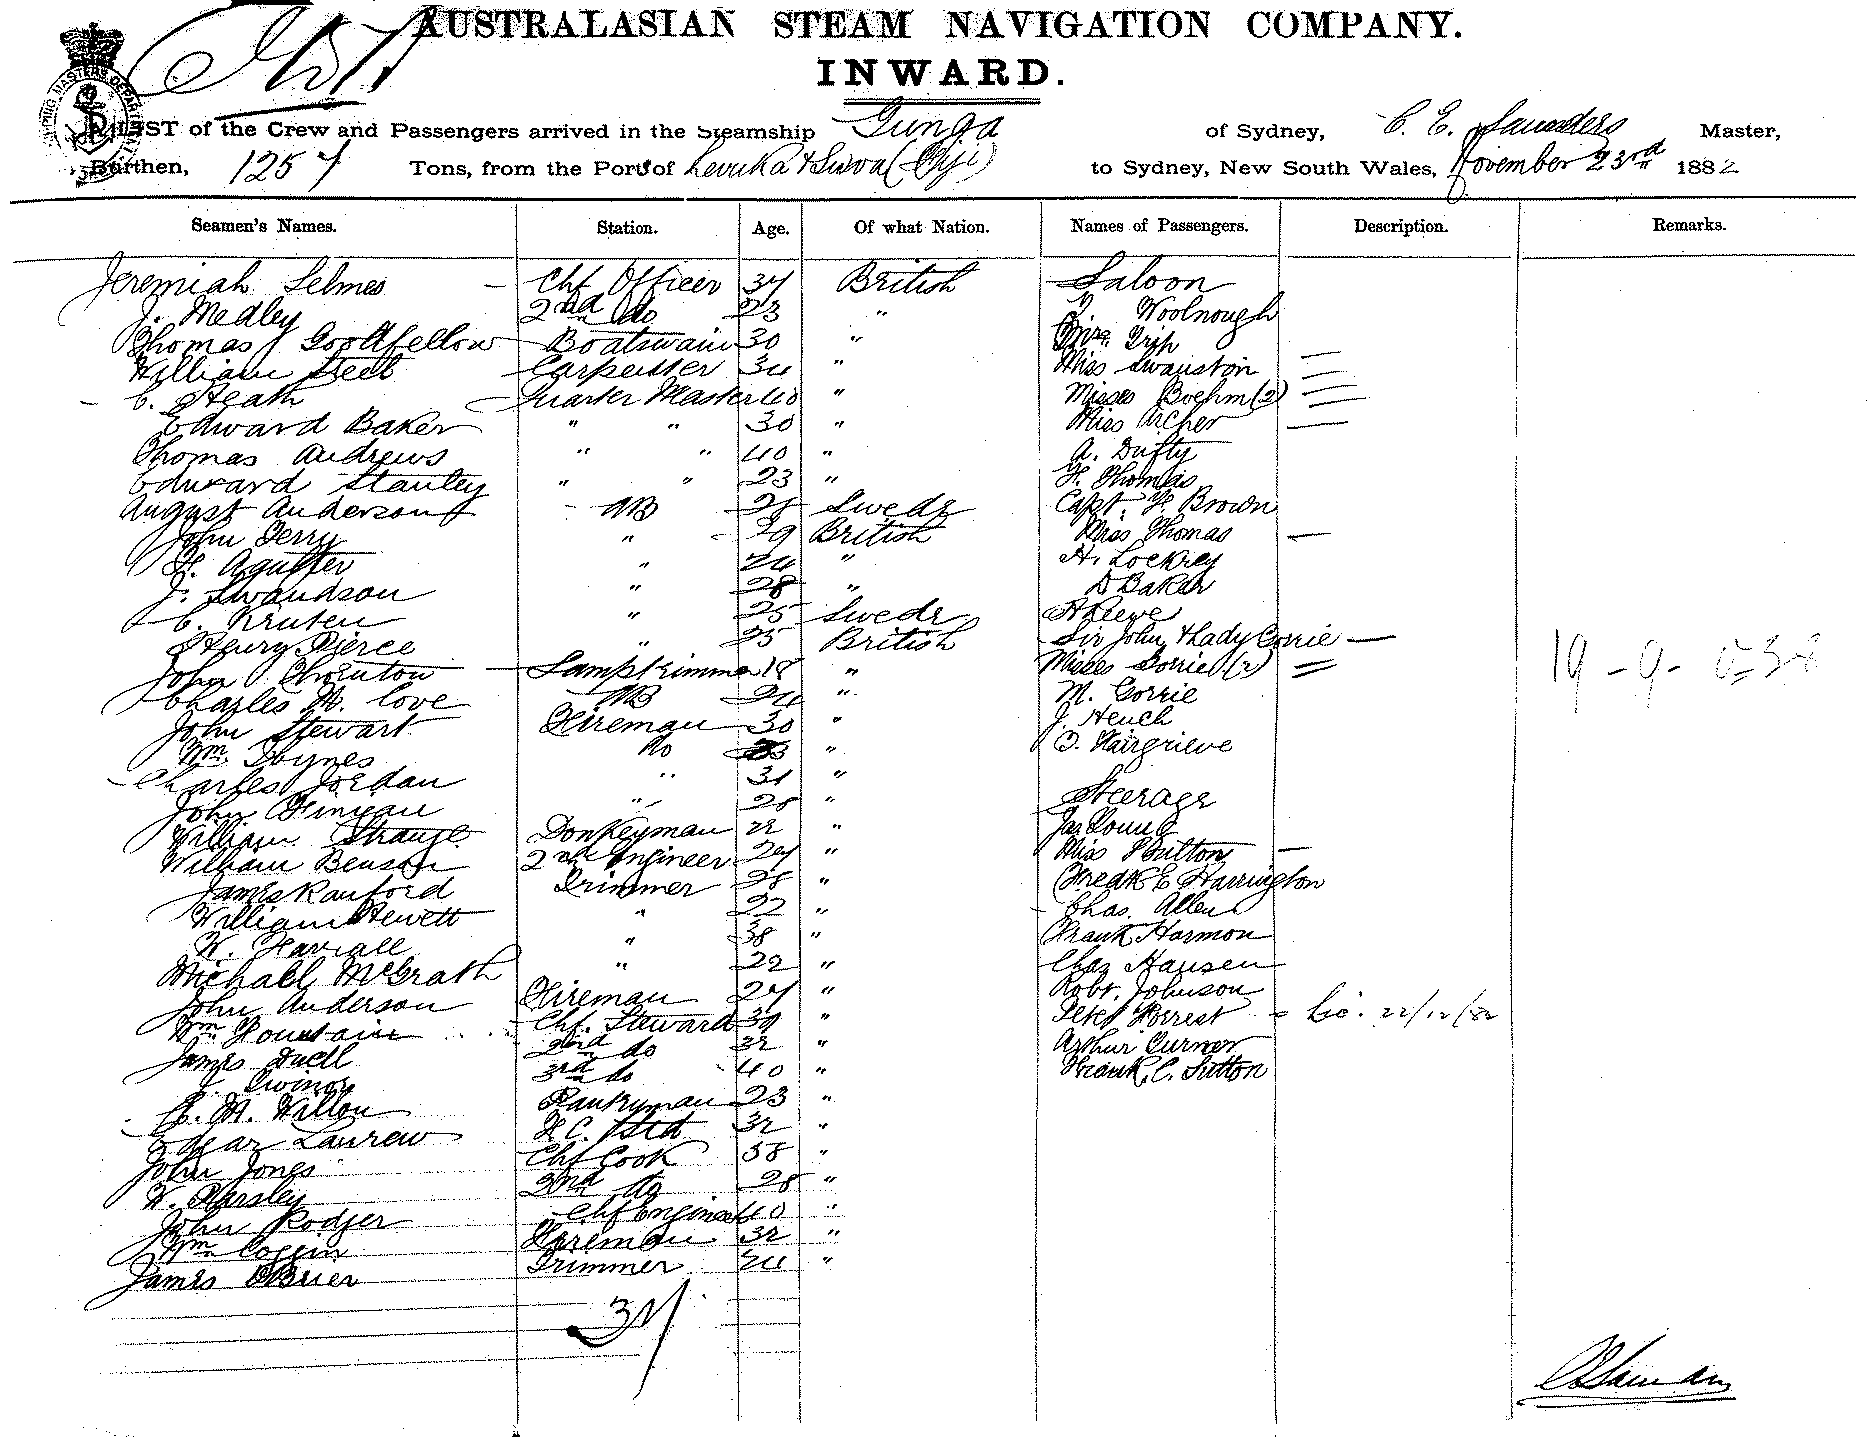 AUSTRALASIAN STEAM NAVIGATION COMPANY.
INWARD.
LIST of the Crew and Passengers arrived in the Steamship Gunga of Sydney, C. E. Saunders Master,
Burthen, 1257 Tons, from the Port of Levuka & Suva (Fiji) to Sydney, New South Wales, November 23rd 1882
Seamen's Names. Station. Age. Of what Nation. Names of Passengers. Description. Remarks.
Jeremiah Selmes Chf Officer 37 British Saloon
J. Medley 2nd do 23 " Woolnough
Thomas Goodfellow Boatswain 30 " Trip
William Steel Carpenter 34 " Miss Swanston
C. Heath Quarter Master 40 " Misses Boehm (2)
Edward Baker " " 30 " Miss Archer
Thomas Andrews " " 40 " A. Dufty
Edward Stanley " " 23 " F. Thomas
August Anderson AB 28 Swede Capt. Brown
John Terry " 29 British Miss Thomas
H. Agutter " 24 " A. Lockrey
J. Swandson " 28 " D Baker
C. Kruten " 25 Swede Reeve
Henry Pierce " 25 British Sir John & Lady Gorrie
John Thornton Lamptrimmer 18 " Misses Gorrie (2)
Charles W. Cove AB 24 " M. Gorrie
John Stewart Fireman 30 " J. Heuch
Wm. Thynes do " Hairgrieve
Charles Jordan " 31 "
John Finnean " 28 " Steerage
William Strange Donkeyman 22 " Jas Young
William Benson 2nd Engineer 27 " Miss Hutton
James Ranford Trimmer 28 " Fredk E Harrington
William Hewett " 22 " Chas. Allen
W. Harrall " 38 " Frank Harmon
Michael McGrath " 22 " Chas Hansen
John Anderson Fireman 27 " Robt. Johnson
Wm Fountain Chf. Steward 39 " Peter Forrest
James Duell 2nd do 32 " Arthur Turner
3rd do 40 " Frank C. Sutton
Pantryman 23 "
Edgar 32 "
John Jones Chf Cook 38 "
W. Parsley 2nd do 28 "
John Rodger Chf Engineer 40 "
Wm Coggin Fireman 32 "
James O'Brien Trimmer 24 "
37